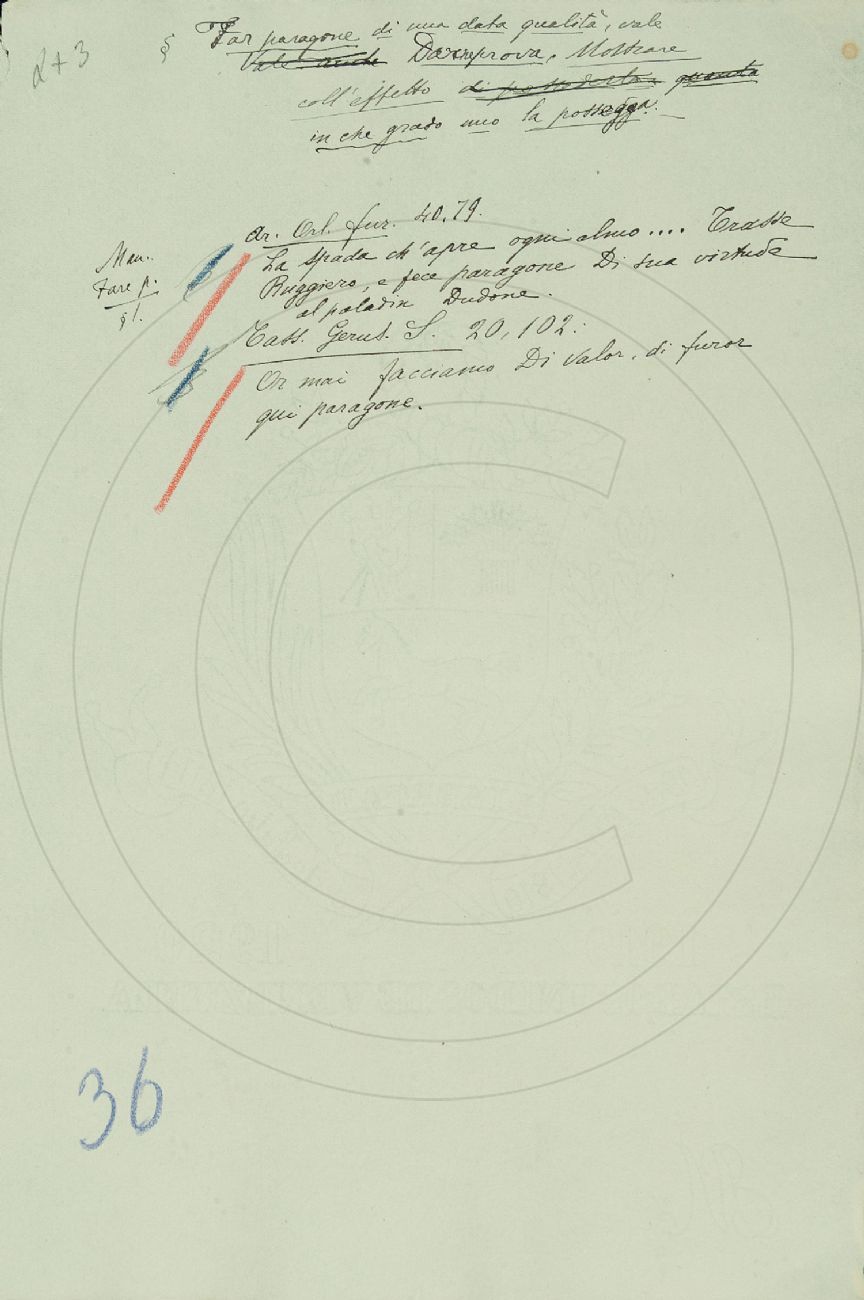 2+3
§ Far paragone di una data qualità, vale
Vale anche Dar prova, Mostrare
coll'effetto di possederla quanta
in che grado uno la possegga.
Man.
Fare p.
§ 1.
Ar. Orl. fur. 40,79.
La spada ch'apre ogni elmo.... Trasse
Ruggiero, e fece paragone Di sua virtude
al paladin Dudone.
Tass. Gerus. S. 20, 102:
Or mai facciamo Di valor, di furor
qui paragone.
36